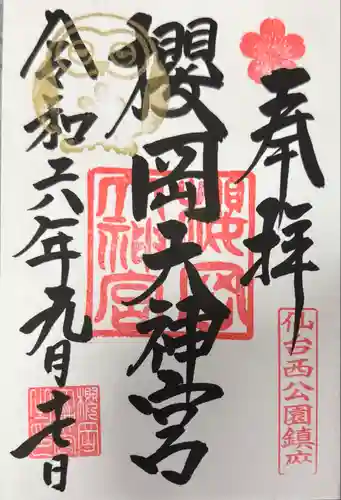 奉拝
仙台西公園鎮座
櫻岡天神宮
櫻岡大神宮
令和六年九月十七日